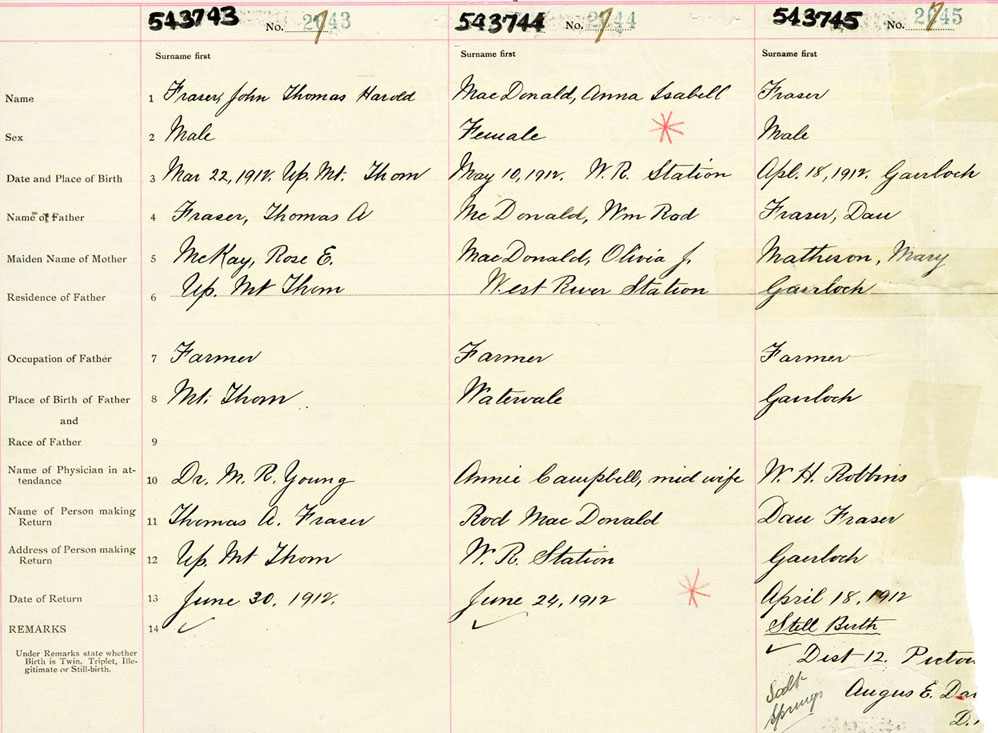 543743 543744 543745
No. 2743 No. 2744 No. 2745
Surname first Surname first Surname first
Name 1 Fraser, John Thomas Harold MacDonald, Anna Isabell Fraser
Sex 2 Male Female Male
Date and Place of Birth 3 Mar 22, 1912. Up. Mt. Thom May 10, 1912. W. R. Station Apl. 18, 1912. Gairloch
Name of Father 4 Fraser, Thomas A McDonald, Wm Rod Fraser, Dan
Maiden Name of Mother 5 McKay, Rose E. MacDonald, Olivia J. Matheson, Mary
Residence of Father 6 Up. Mt Thom West River Station Gairloch
Occupation of Father 7 Farmer Farmer Farmer
Place of Birth of Father 8 Mt. Thom Watervale Gairloch
and
Race of Father 9
Name of Physician in at-
tendance 10 Dr. M. R. Young Annie Campbell, mid wife W. H. Robbins
Name of Person making
Return 11 Thomas A. Fraser Rod MacDonald Dan Fraser
Address of Person making
Return 12 Up. Mt Thom W. R. Station Gairloch
Date of Return 13 June 30. 1912. June 24, 1912 April 18, 1912
REMARKS 14 Still Birth
Under Remarks state whether
Birth is Twin, Triplet, Ille-
gitimate or Still-birth.
Dist 12. Pictou
Salt
Springs
Angus E.
D.